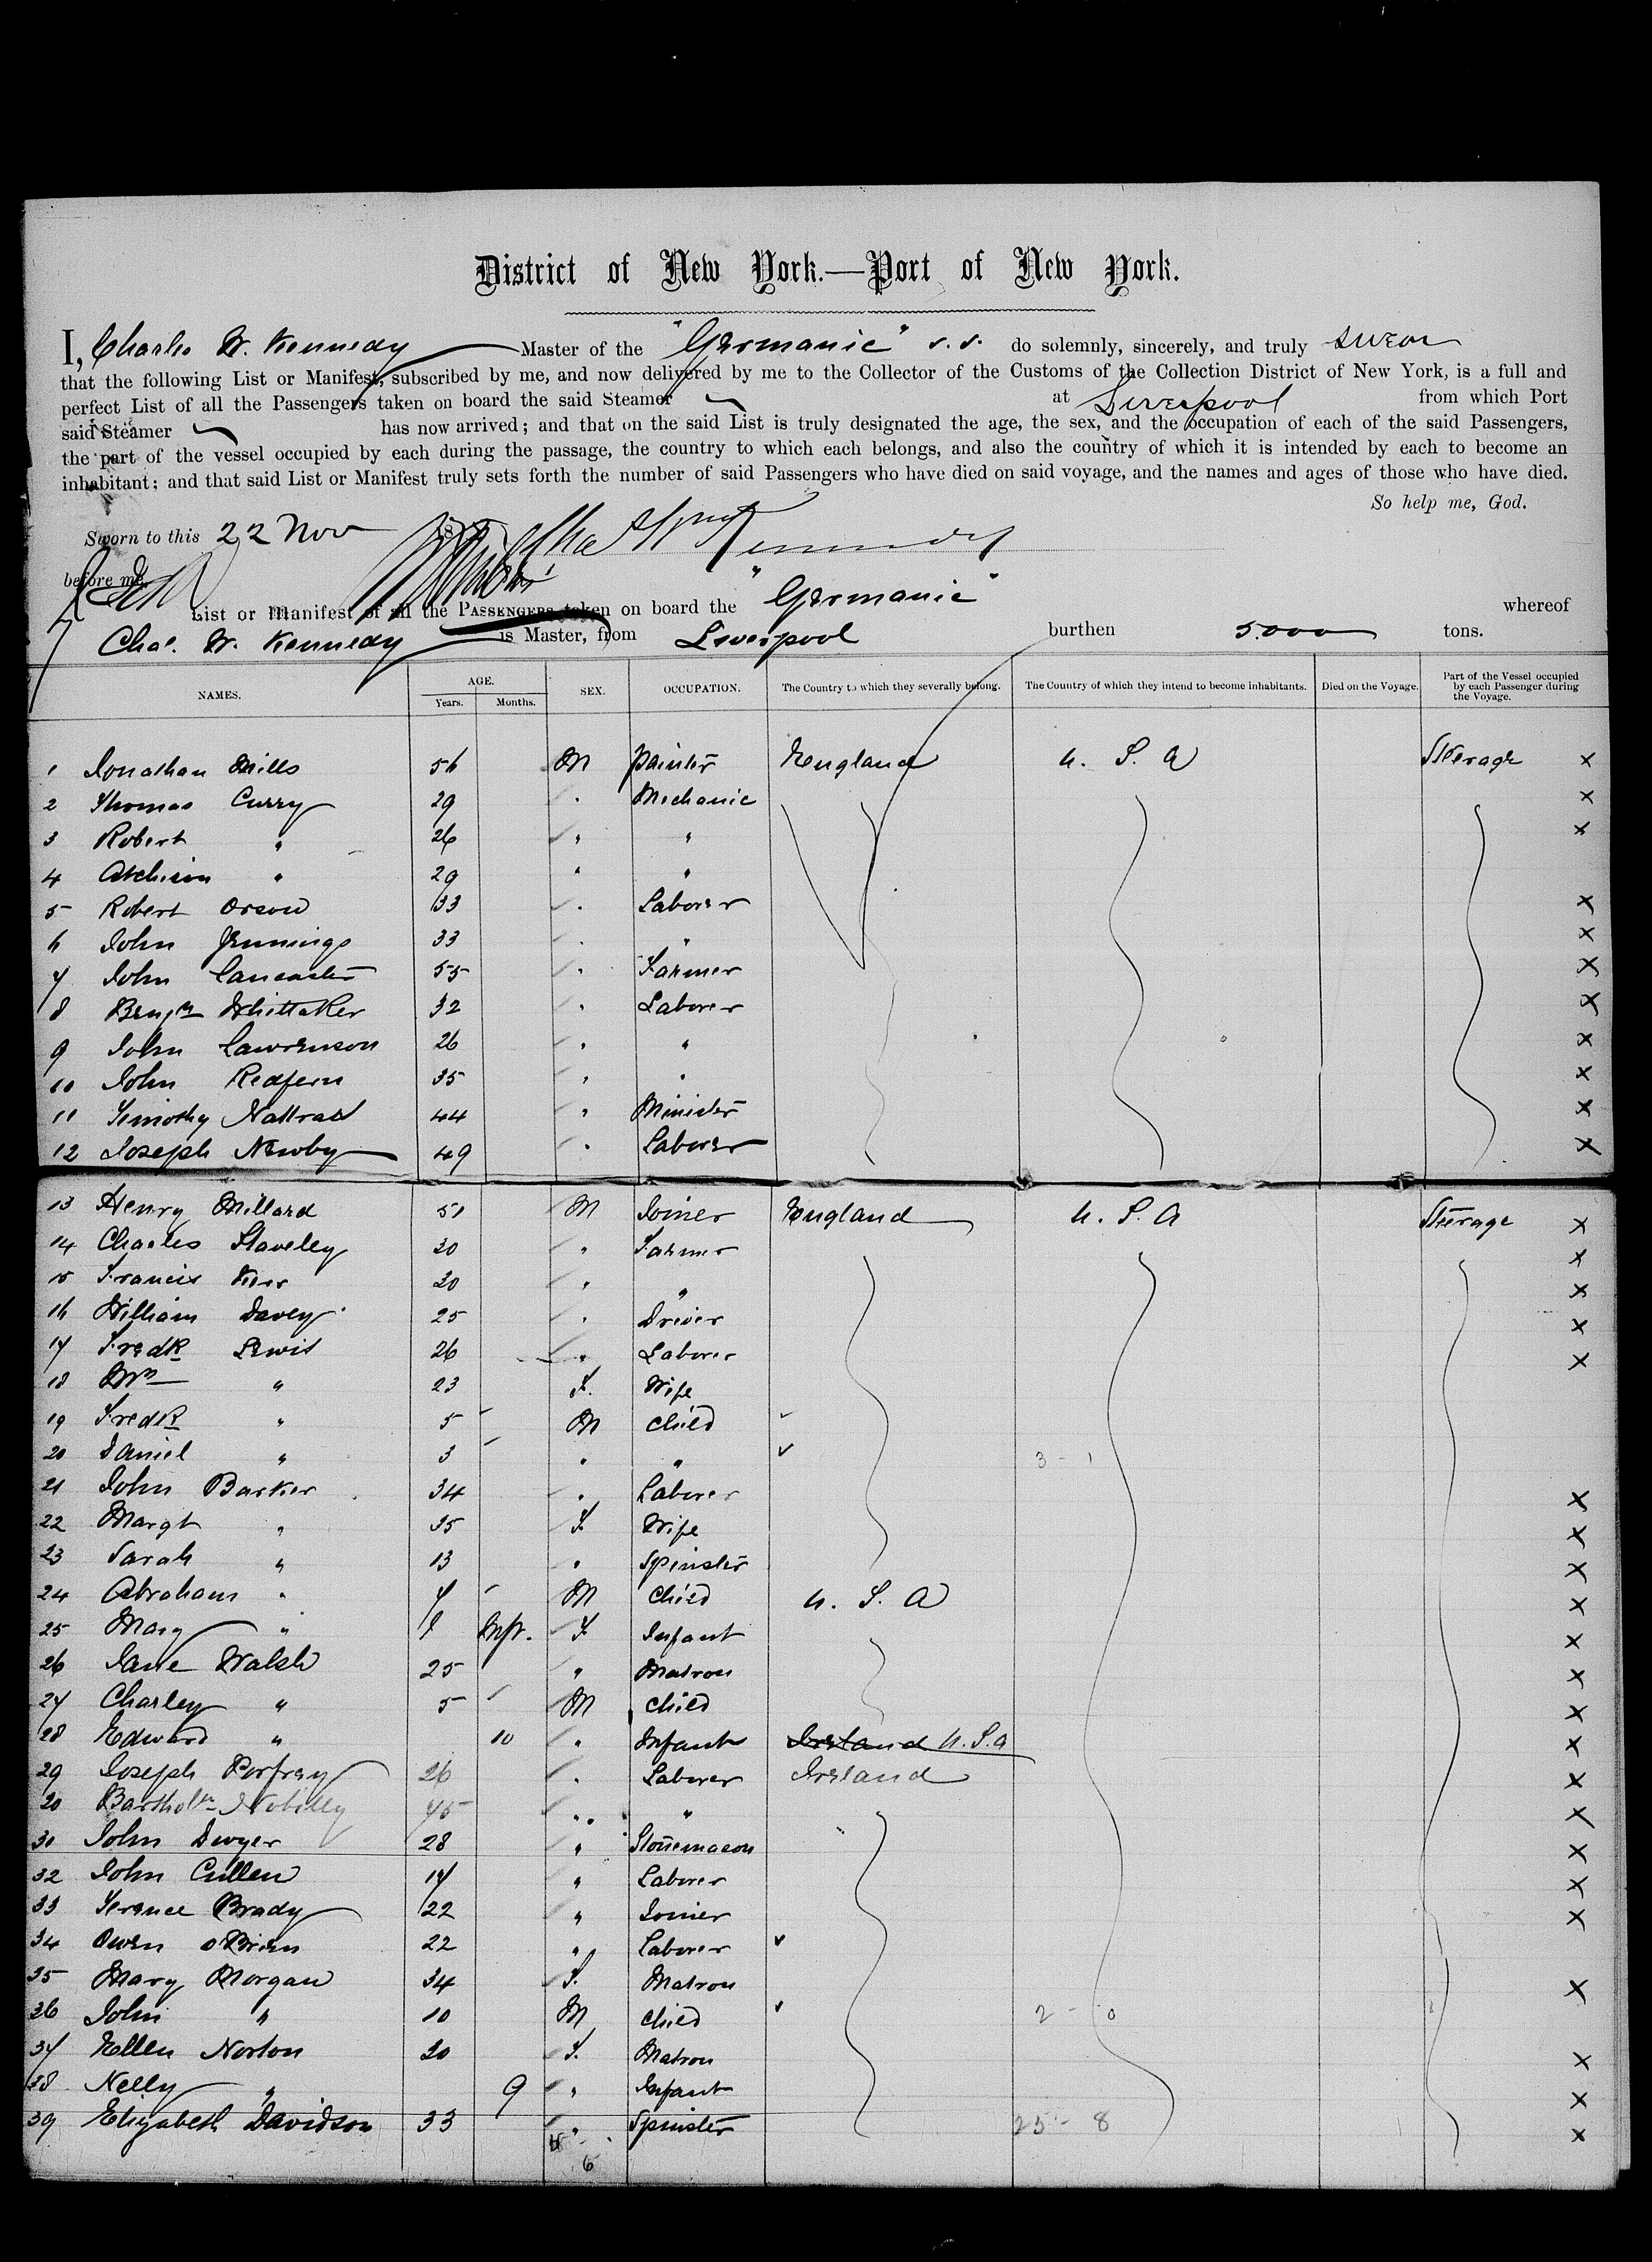 District of New York.—Port of New York.
I, Charles W. Kennedy Master of the "Germanic" s.s. do solemnly, sincerely, and truly swear
that the following List or Manifest, subscribed by me, and now delivered by me to the Collector of the Customs of the Collection District of New York, is a full and
perfect List of all the Passengers taken on board the said Steamer at Liverpool from which Port
said Steamer has now arrived; and that on the said List is truly designated the age, the sex, and the occupation of each of the said Passengers,
the part of the vessel occupied by each during the passage, the country to which each belongs, and also the country of which it is intended by each to become an
inhabitant; and that said List or Manifest truly sets forth the number of said Passengers who have died on said voyage, and the names and ages of those who have died.
So help me, God.
Sworn to this 22 Nov Kennedy
before me,
List or Manifest of all the PASSENGERS taken on board the "Germanic" whereof
Chas. W. Kennedy is Master, from Liverpool burthen 5.000 tons.
NAMES. AGE. Years. Months. SEX. OCCUPATION. The Country to which they severally belong. The Country of which they intend to become inhabitants. Died on the Voyage. Part of the Vessel occupied by each Passenger during the Voyage.
1 Jonathan Mills 56 M Painter England U.S.A Steerage x
2 Thomas Curry 29 " Mechanic x
3 Robert " 26 " " x
4 Atchison " 29 " "
5 Robert Orson 33 " Laborer x
6 John Jennings 33 " " x
7 John Lancaster 55 " Farmer x
8 Benjn Whittaker 32 " Laborer x
9 John Lawrenson 26 " " x
10 John Redfern 35 " " x
11 Timothy Nattrass 44 " Minister x
12 Joseph Newby 49 " Laborer x
13 Henry Millard 51 M Joiner England U.S.A Steerage x
14 Charles Staveley 30 " Farmer x
15 Francis Kerr 20 " " x
16 William Davey 25 " Driver x
17 Fredk Lewis 26 " Laborer x
18 Mrs " 23 F. Wife
19 Fredk " 5 M Child
20 Daniel " 3 " " 3 - 1
21 John Barker 34 " Laborer x
22 Margt " 35 F. Wife x
23 Sarah " 13 " Spinster x
24 Abraham " 7 M Child U.S.A x
25 Mary " 1 Inft. F Infant x
26 Jane Walsh 25 " Matron x
27 Charley " 5 M Child x
28 Edward " 10 " Infant Ireland U.S.A x
29 Joseph Porfrey 26 " Laborer Ireland x
45 " " x
John Dwyer 28 " Stonemason x
32 John Cullen 17 " Laborer x
33 Terence Brady 22 " Joiner x
34 Owen O'Brien 22 " Laborer
35 Mary Morgan 34 F. Matron x
36 John " 10 M Child 2 - 0
37 Ellen Norton 20 F. Matron x
38 Nelly " 9 " Infant x
39 Elizabeth Davidson 33 " Spinster 25 - 8 x
6